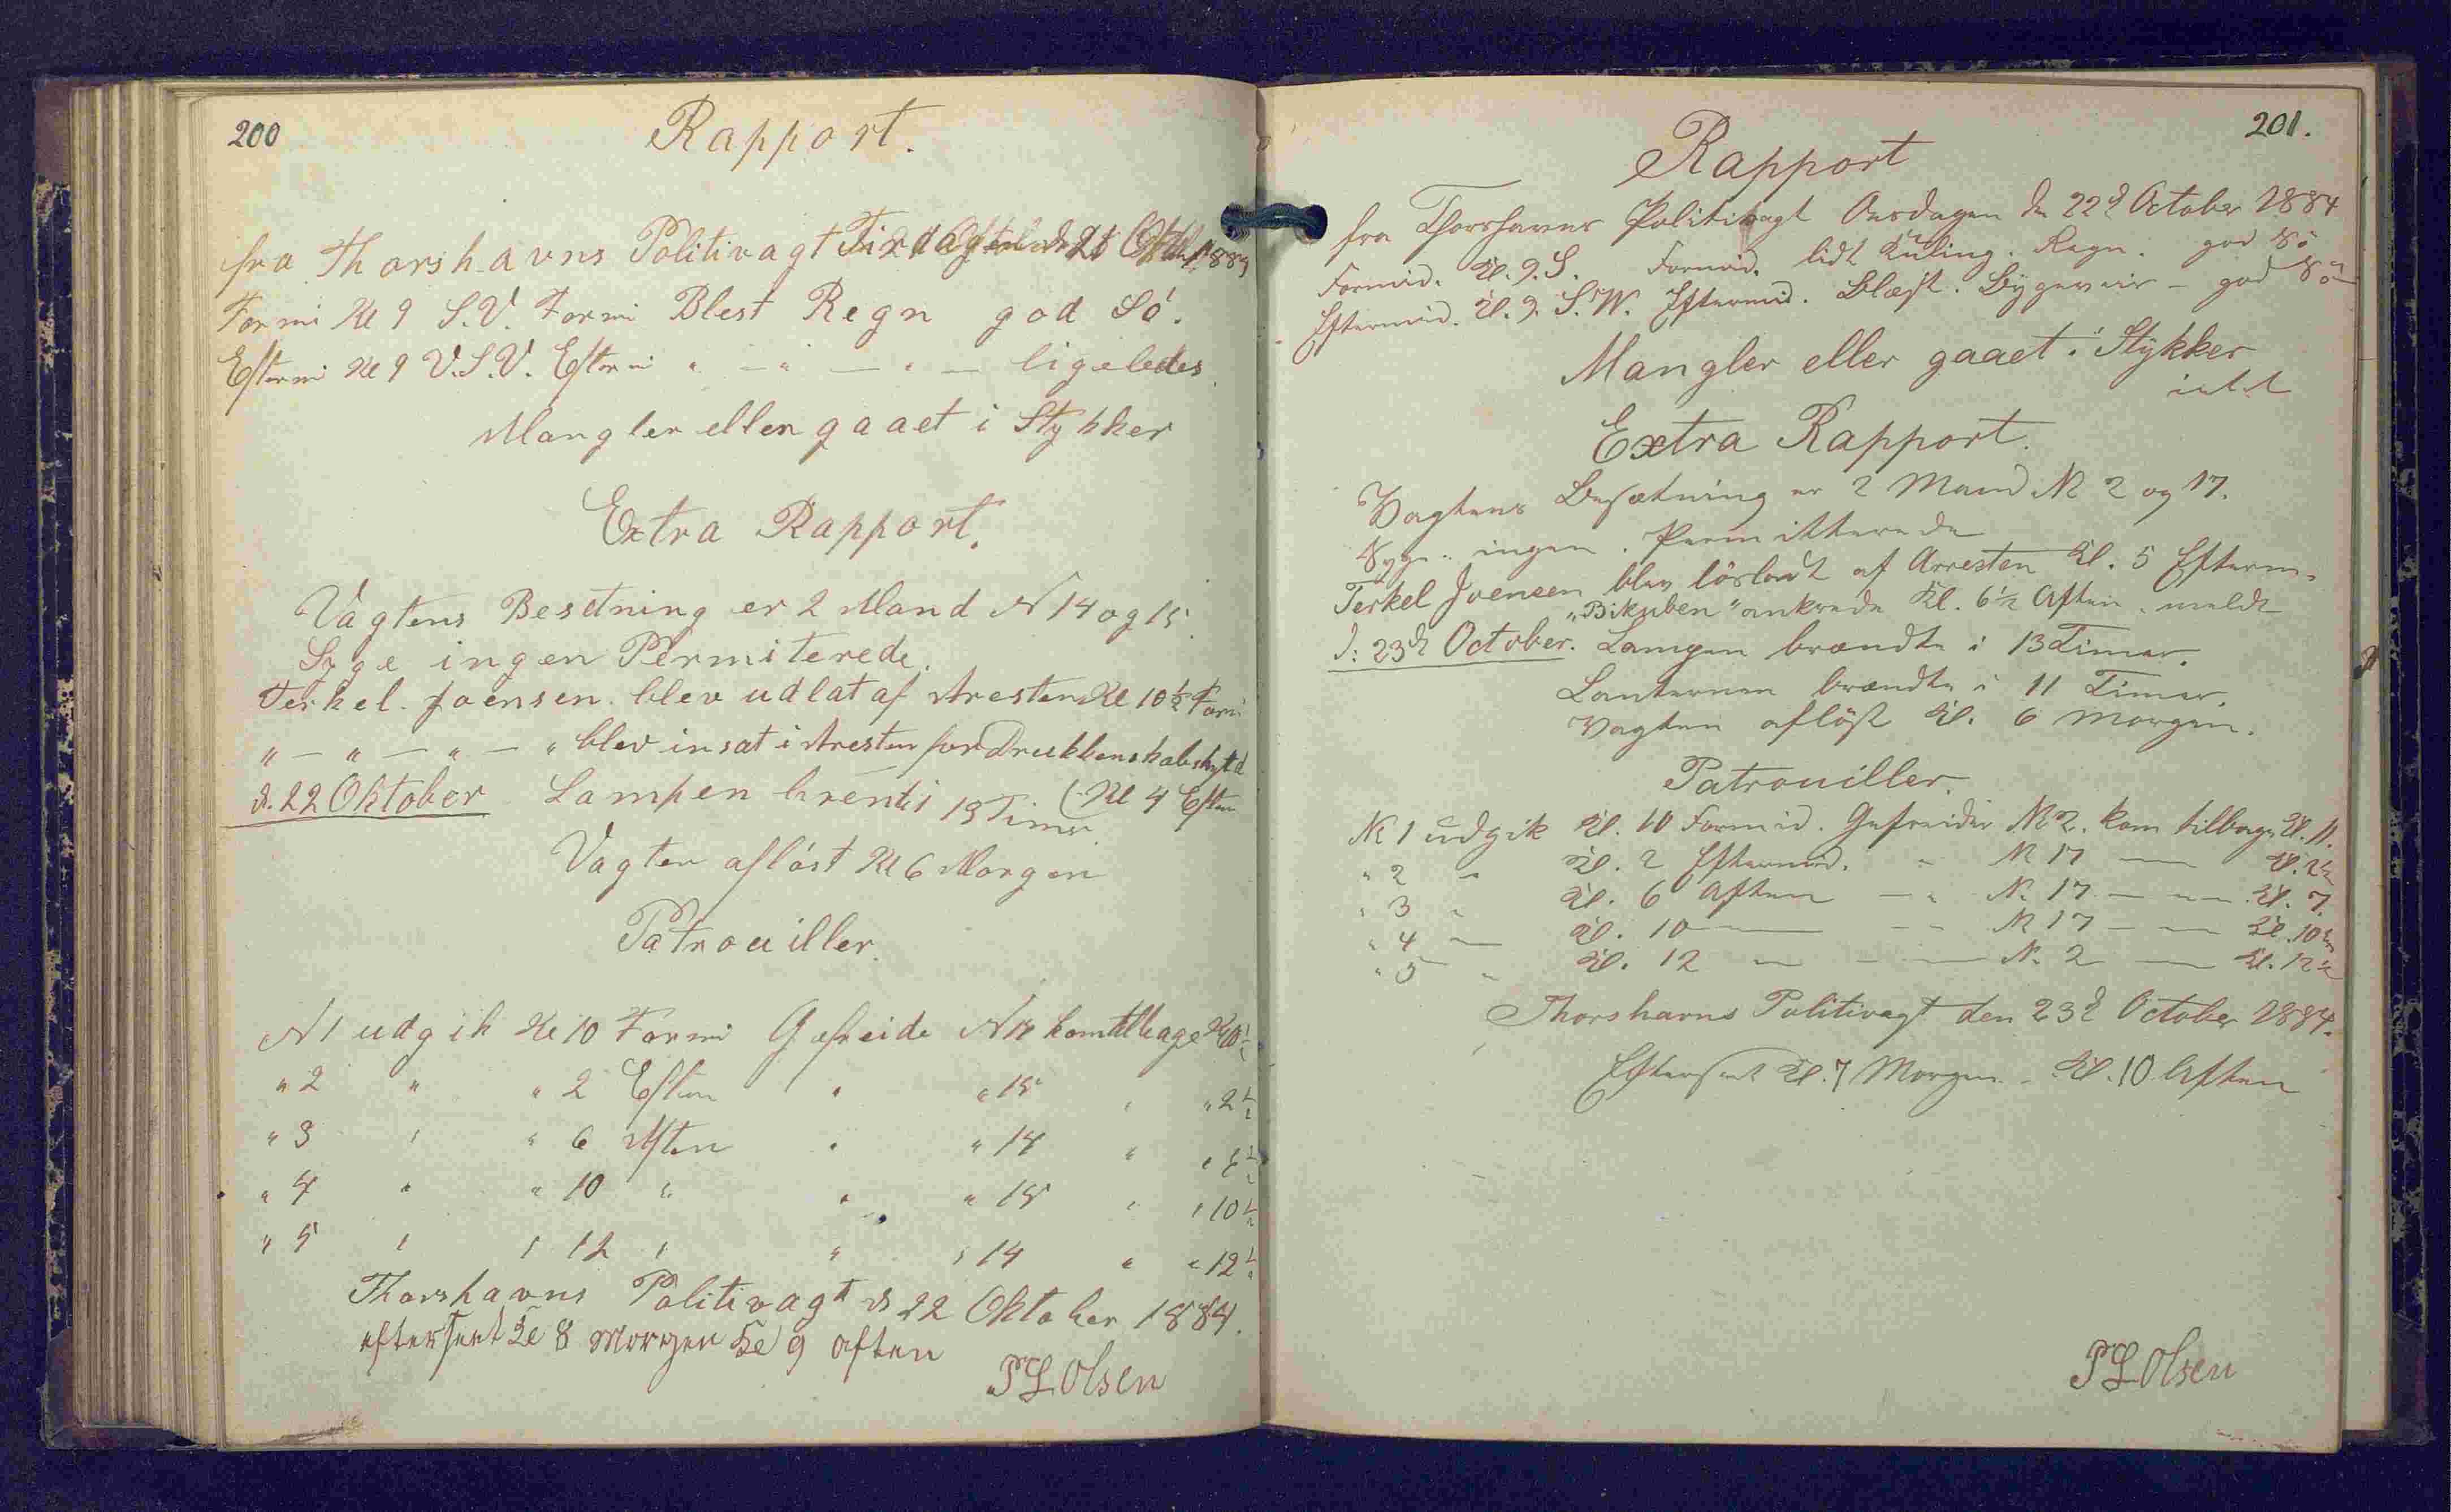 200
Rapport.
fra Thorshavns Politivagt Tirdagen d 21 Oktbr 1884
Formi Kl 9 S.V. Formi Blest Regn god Sö.
Eftermi Kl 9 V.S.V. Eftermi " — " — " — ligeledes
Mangler eller gaaet i Stykker
Extra Rapport.
Vagtens Besetning er 2 Mand N 14 og 15.
Syge ingen Permiterede.
Terkel Joensen blev udlat af Aresten Kl 10½ Formi
" — " — " — " blev insat i Aresten for Drukkenskab
d. 22 Oktober Lampen brenti 13 Timer (Kl 4 Efter
Vagten aflöst Kl 6 Morgen
Patrouiller.
N 1 udgik Kl 10 Formi Gefreide N 14 kom tilbage Kl 10½
" 2 " " 2 Efterm " " 15 " " 2½
" 3 " " 6 Aften " " 14 " " 6½
" 4 " " 10 " " " 15 " " 10½
" 5 " " 12 " " " 14 " " 12½
Thorshavns Politivagt d 22 Oktober 1884.
efterseet Kl 8 Morgen Kl 9 aften
PL Olsen
201.
Rapport
fra Thorshavns Politivagt Onsdagen den 22d October 1884
Formid. Kl. 9. S. Formid. lidt Kuling. Regn. god Sö
Eftermid. Kl. 9. S.W. Eftermid. Blæst. Bygeveir — god Sö
Mangler eller gaaet i Stykker
intet
Extra Rapport.
Vagtens Besætning er 2 Mand N 2 og 17.
Syge " ingen. Permitterede
Terkel Joensen blev lösladt af Arresten Kl. 5 Efterm.
"Bikuben" ankrede Kl. 6½ Aften. meldt
D: 23d October. Lampen brændte i 13 Timer.
Lanternen brændte i 11 Timer.
Vagten aflöst Kl. 6 Morgen.
Patrouiller.
N 1 udgik Kl. 10 Formid. Gefreider N 2. kom tilbage Kl. 11.
" 2 " Kl. 2 Eftermid. " N 17 — Kl. 2½
" 3 " Kl. 6 Aften — " N. 17 — — Kl. 7.
" 4 — Kl. 10 — — " N 17 — — Kl. 10½
" 5 " Kl. 12 — — — N. 2 — Kl. 12½
Thorshavns Politivagt den 23d October 1884.
Efterseet Kl. 7 Morgen. Kl. 10 Aften
PL Olsen